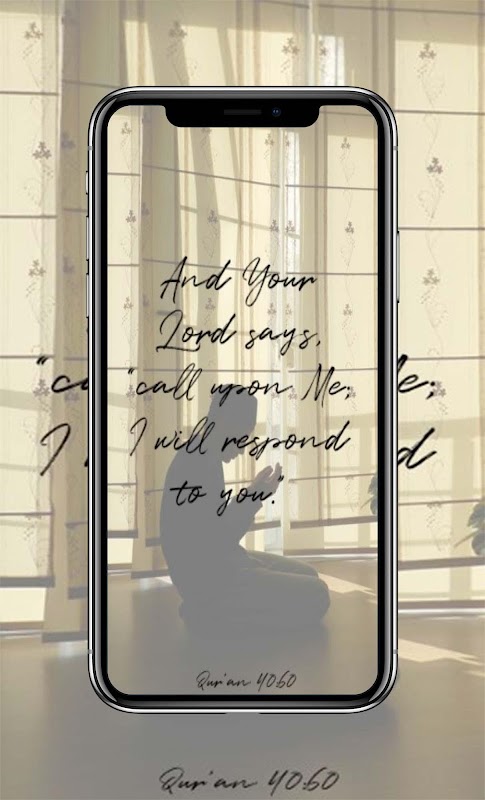 And Your
Lord says,
"call upon Me;
I will respond
to you."
Qur'an 40:60
Me;
I
d
Qur'an 40:60